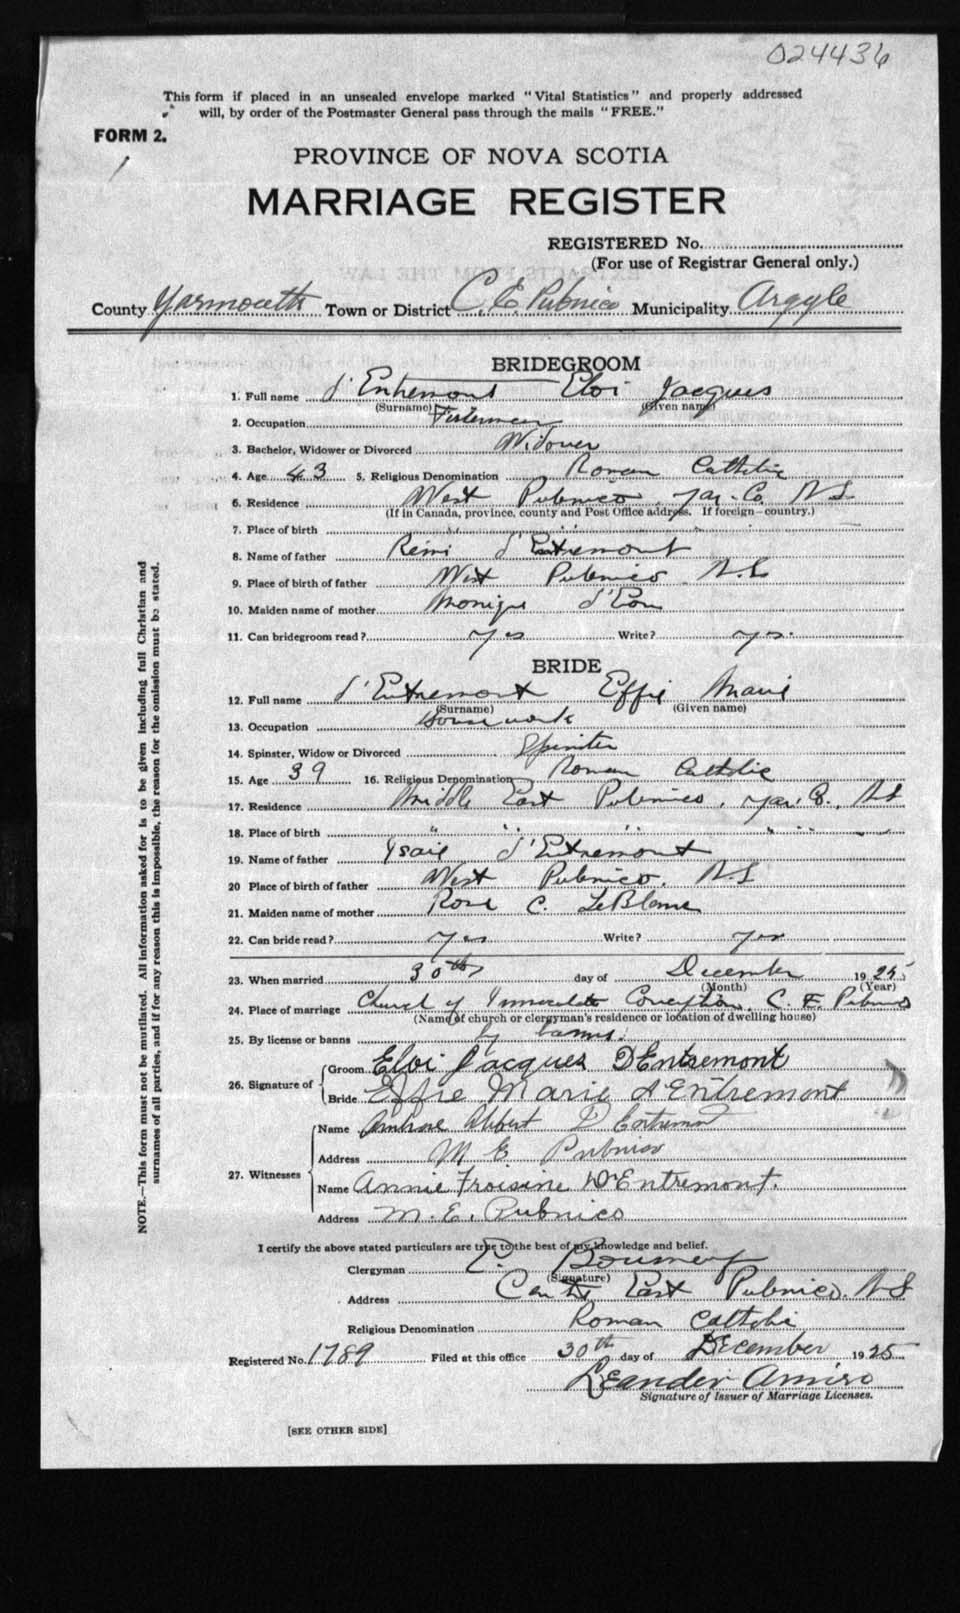 024436
This form if placed in an unsealed envelope marked "Vital Statistics" and properly addressed
will, by order of the Postmaster General pass through the mails "FREE."
FORM 2.
1
PROVINCE OF NOVA SCOTIA
MARRIAGE REGISTER
REGISTERED No.
(For use of Registrar General only.)
County Yarmouth Town or District C. E. Pubnico Municipality Argyle
BRIDEGROOM
1. Full name d'Entremont Eloi Jacques
(Surname) (Given name)
2. Occupation Fisherman
3. Bachelor, Widower or Divorced Widower
4. Age 43 5. Religious Denomination Roman Catholic
6. Residence West Pubnico, Yar. Co. N S
(If in Canada, province, county and Post Office address. If foreign—country.)
7. Place of birth " " "
8. Name of father Rémi d'Entremont
9. Place of birth of father West Pubnico N.S
10. Maiden name of mother Monique d'Eon
11. Can bridegroom read? yes Write? yes.
BRIDE
12. Full name d'Entremont Effie Marie
(Surname) (Given name)
13. Occupation House work
14. Spinster, Widow or Divorced Spinster
15. Age 39 16. Religious Denomination Roman Catholic
17. Residence Middle East Pubnico, Yar. Co., N S
18. Place of birth " " " " " "
19. Name of father Ysaie d'Entremont
20 Place of birth of father West Pubnico, N.S
21. Maiden name of mother Rose C. LeBlanc
22. Can bride read? yes Write? yes
23. When married 30th day of December 1925
(Month) (Year)
24. Place of marriage Church of Immaculate Conception, C. E. Pubnico
(Name of church or clergyman's residence or location of dwelling house)
25. By license or banns by banns.
26. Signature of Groom Eloi Jacques DEntremont
Bride Effie Marie d Entremont
27. Witnesses Name Albert D Entremont
Address M E Pubnico
Name Annie Froisine D'Entremont.
Address M. E. Pubnico
I certify the above stated particulars are true to the best of my knowledge and belief.
Clergyman
(Signature)
Address Centre East Pubnico, N S
Religious Denomination Roman Catholic
Registered No. 1789 Filed at this office 30th day of December 1925
Leander Amiro
Signature of Issuer of Marriage Licenses.
[SEE OTHER SIDE]
NOTE.—This form must not be mutilated. All information asked for is to be given including full Christian and
surnames of all parties, and if for any reason this is impossible, the reason for the omission must be stated.